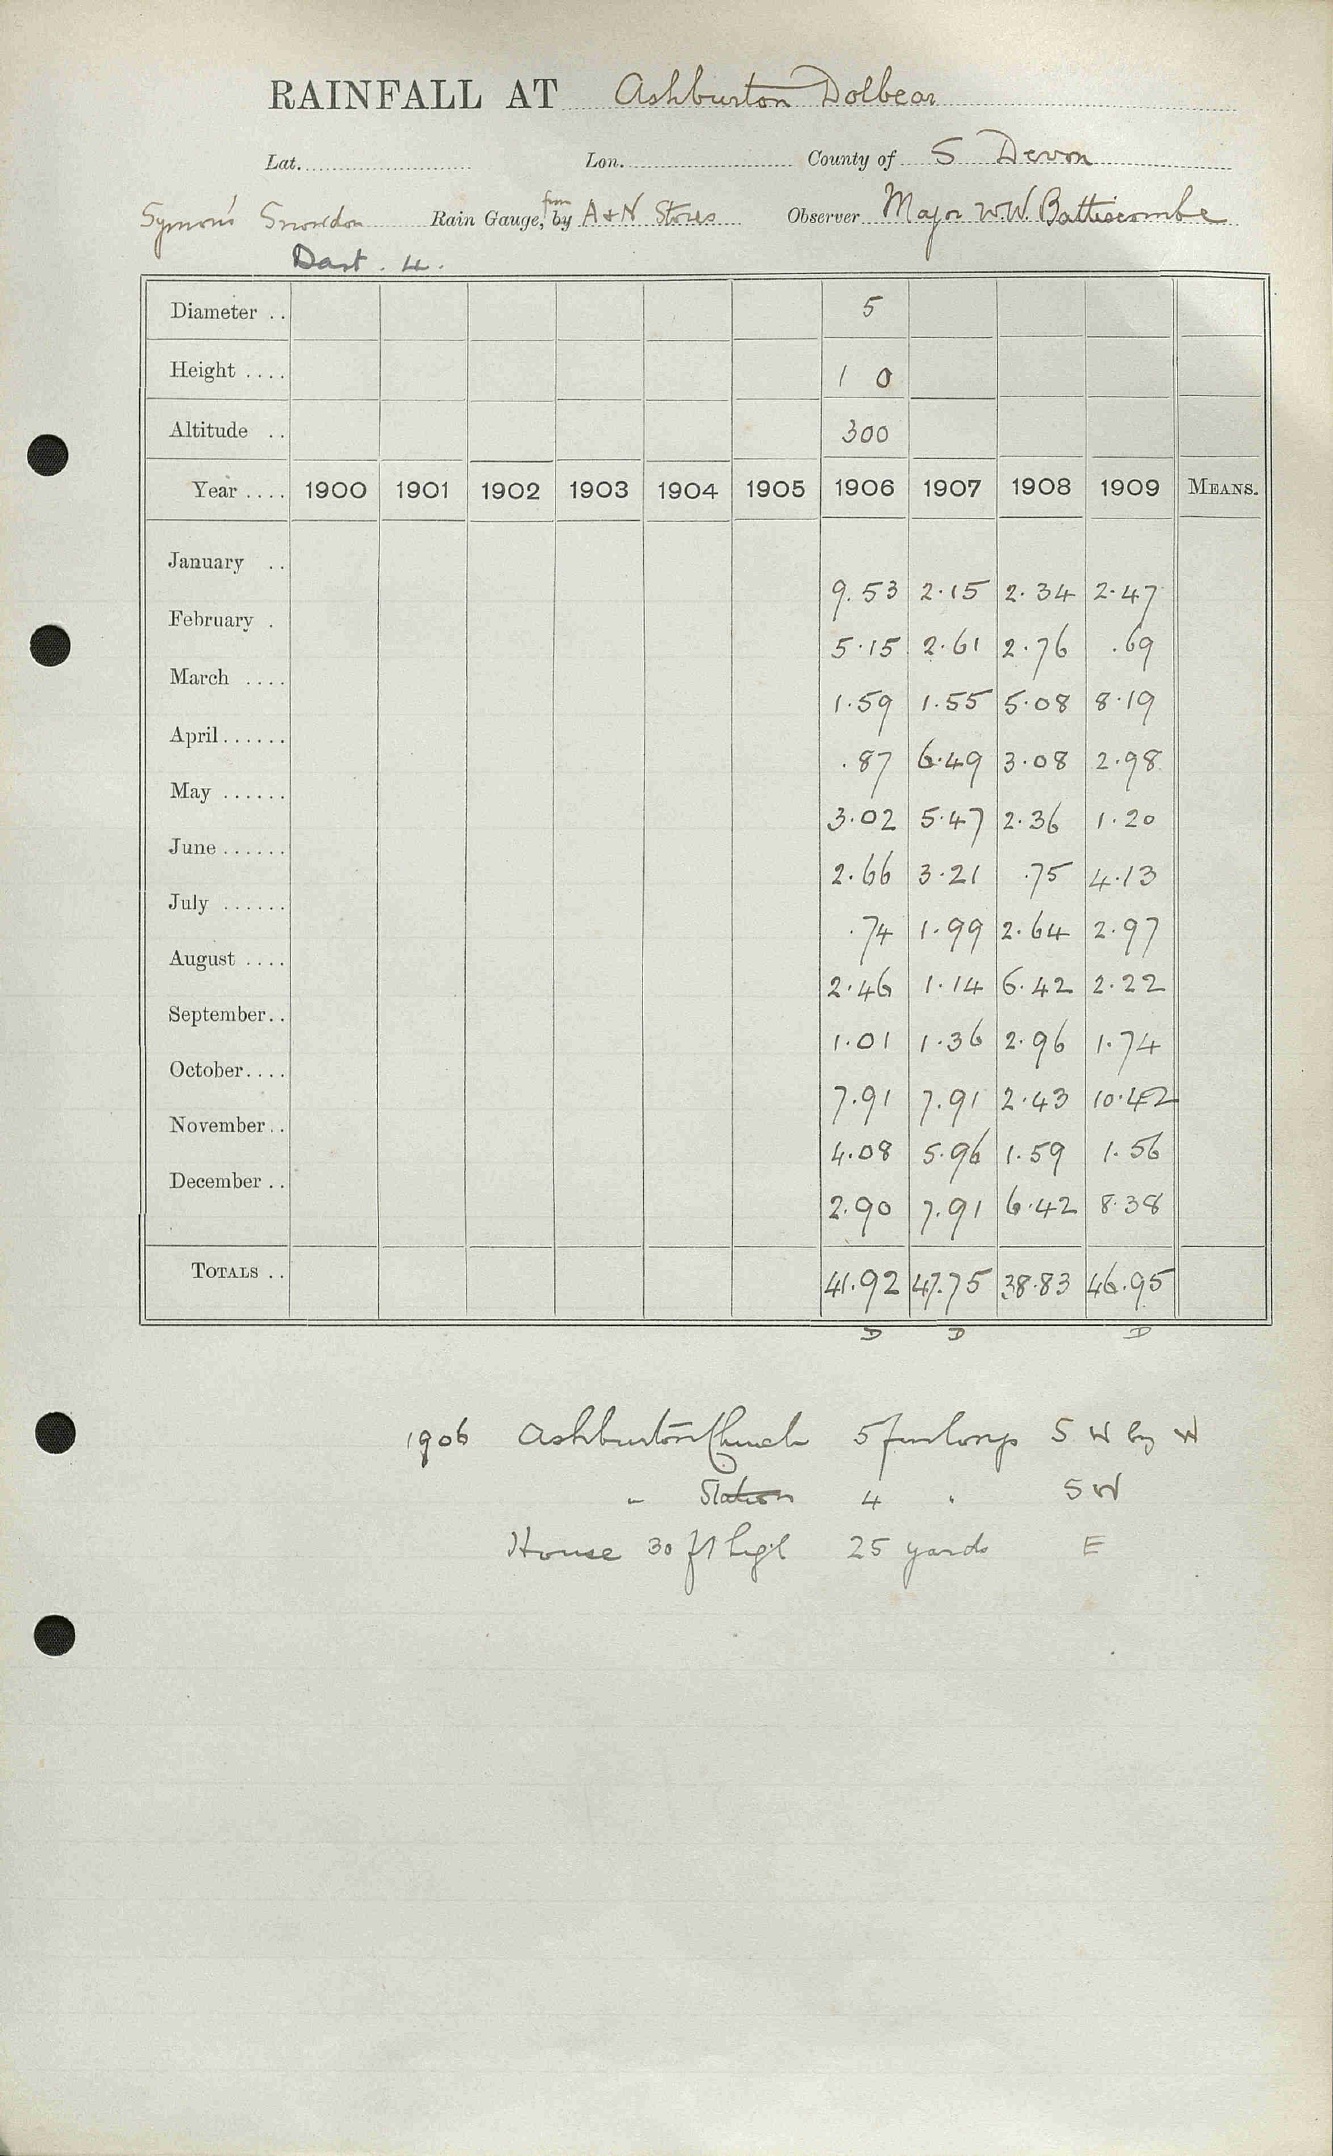 RAINFALL AT Ashburton Dolbear
Lat. Lon. County of S Devon
Symons Snowdon Rain Gauge, from by A & N Stores Observer Major W.W. Battiscombe
Dart. 4.
Diameter .. 5
Height .... 1 0
Altitude .. 300
Year .... 1900 1901 1902 1903 1904 1905 1906 1907 1908 1909 MEANS.
January .. 9.53 2.15 2.34 2.47
February . 5.15 2.61 2.76 .69
March .... 1.59 1.55 5.08 8.19
April...... .87 6.49 3.08 2.98
May ...... 3.02 5.47 2.36 1.20
June ...... 2.66 3.21 .75 4.13
July ...... .74 1.99 2.64 2.97
August .... 2.46 1.14 6.42 2.22
September.. 1.01 1.36 2.96 1.74
October.... 7.91 7.91 2.43 10.42
November.. 4.08 5.96 1.59 1.56
December .. 2.90 7.91 6.42 8.38
TOTALS .. 41.92 47.75 38.83 46.95
D D D
1906 Ashburton Church 5 furlongs S W by W
" Station 4 " S W
House 30 ft high 25 yards E